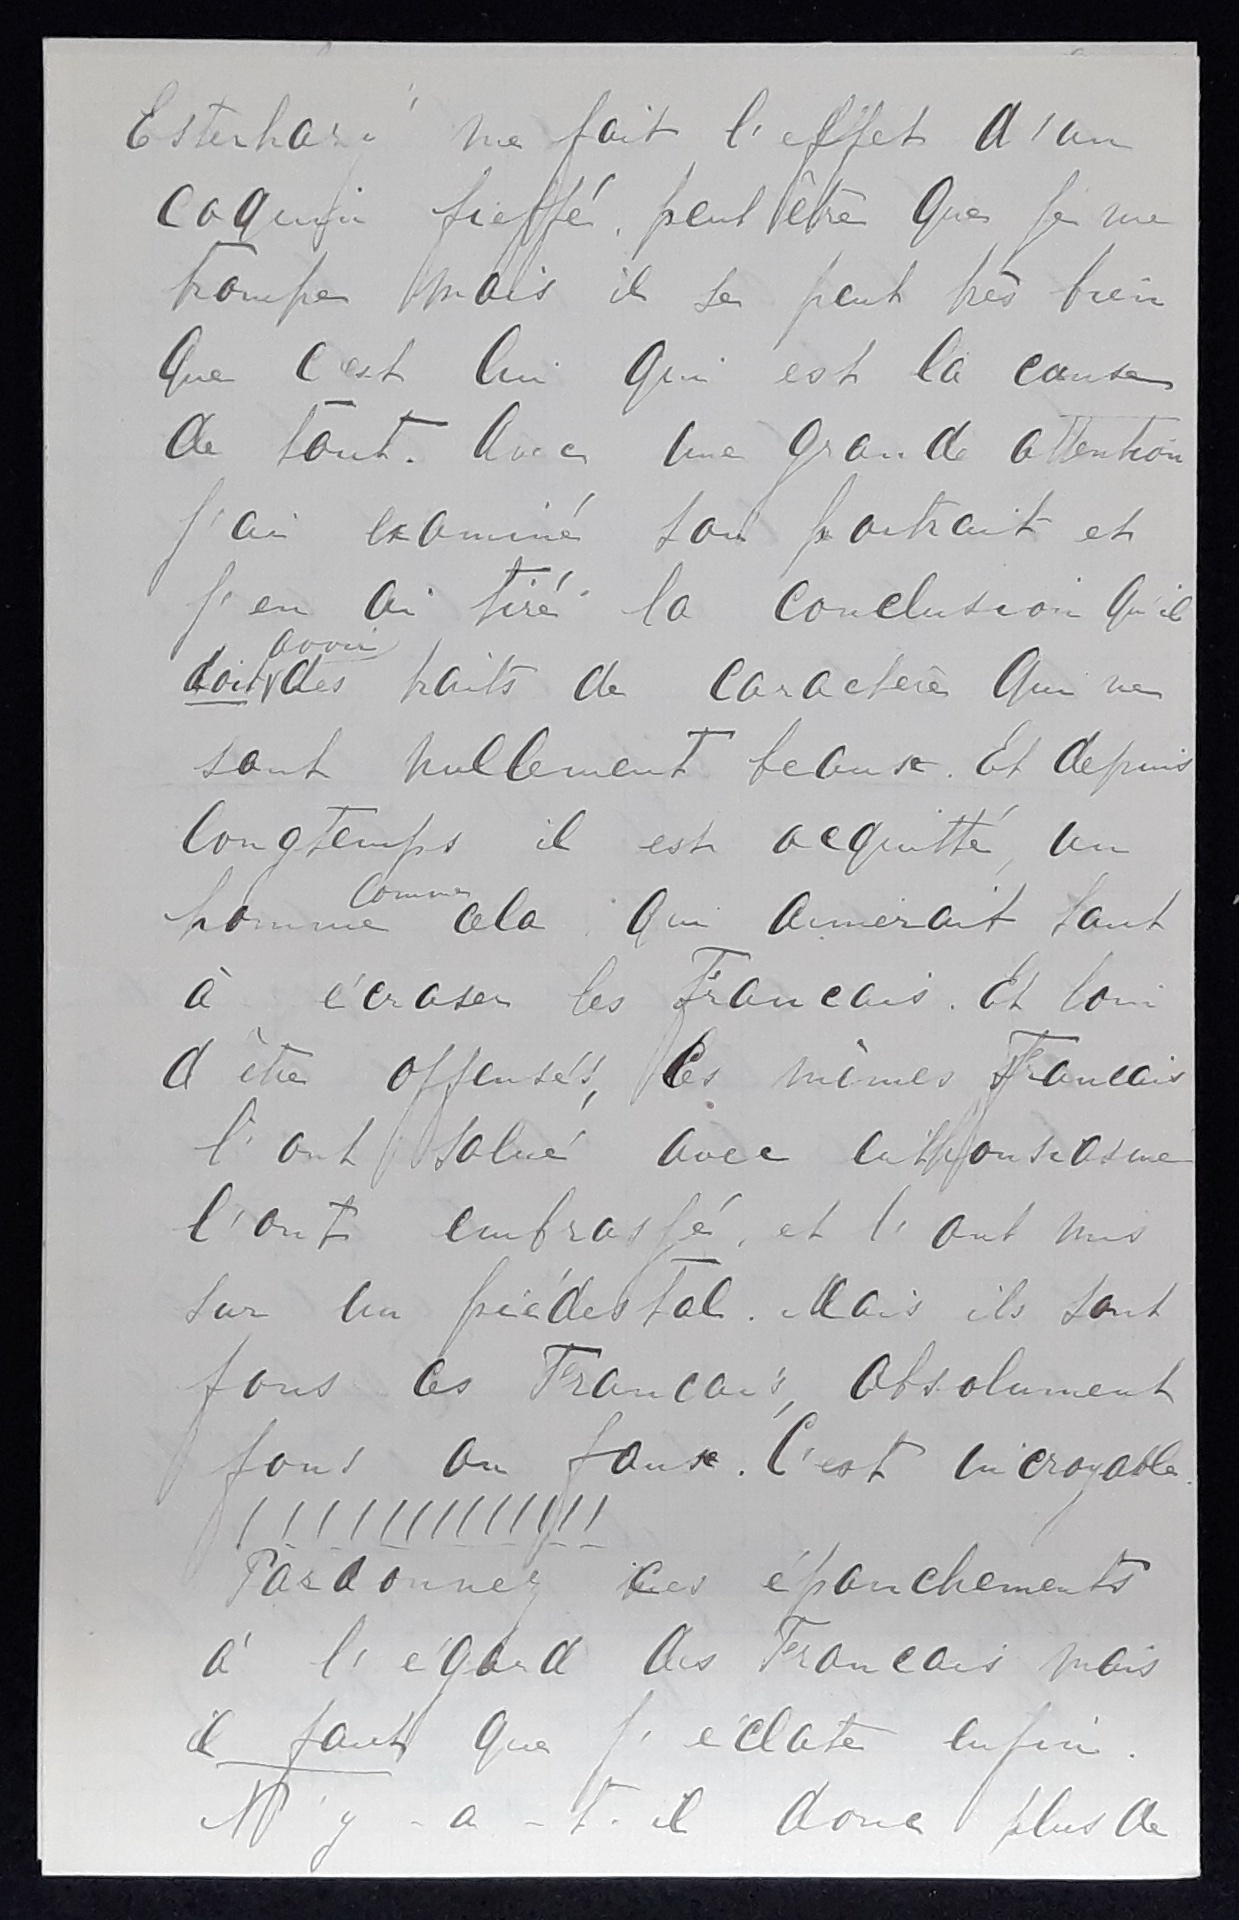 Esterhazy me fait l'effet d'un
coquin fieffé, peut être que je me
trompe mais il se peut très bien
que c'est lui qui est la cause
de tout. Avec une grande attention
j'ai examiné son portrait et
j'en ai tiré la conclusion qu'il
doit avoir des traits de caractère qui ne
sont nullement beaux. Et depuis
longtemps il est acquitté, un
homme comme cela qui aimerait tant
à écraser les Francais. Et loin
d'être offensés, les mêmes Francais
l'ont salué avec enthousiasme
l'ont embrassé, et l'ont mis
sur un piédestal. Mais ils sont
fous ces Francais, absolument
fous ou faux. C'est incroyable.
!!!!!!!!!!!!!
Pardonnez ces épanchements
à l'égard des Francais mais
il faut que j'éclate enfin.
N'y-a-t-il donc plus de